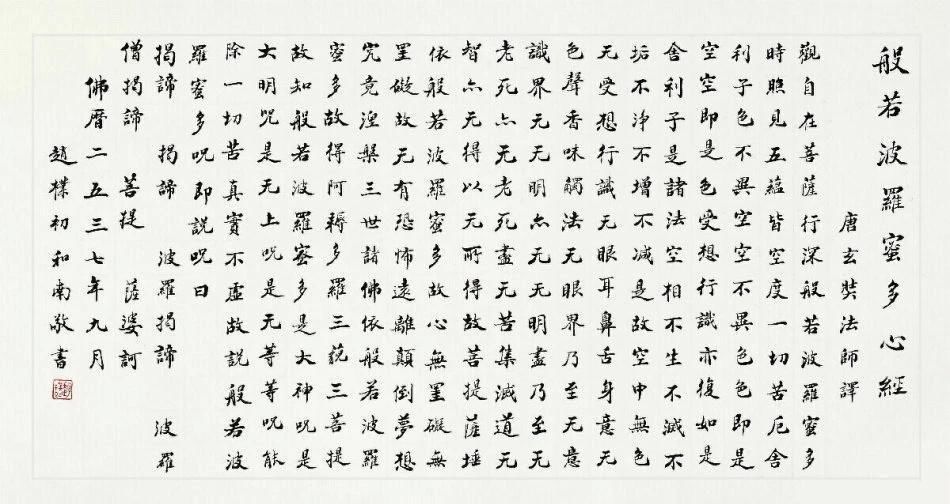 般若波羅蜜多心經
唐玄奘法師譯
觀自在菩薩行深般若波羅蜜多
時照見五蘊皆空度一切苦厄舍
利子色不異空空不異色色即是
空空即是色受想行識亦復如是
舍利子是諸法空相不生不滅不
垢不淨不增不減是故空中無色
无受想行識无眼耳鼻舌身意无
色聲香味觸法无眼界乃至无意
識界无无明亦无无明盡乃至无
老死亦无老死盡无苦集滅道无
智亦无得以无所得故菩提薩埵
依般若波羅蜜多故心無罣礙無
罣礙故无有恐怖遠離顛倒夢想
究竟涅槃三世諸佛依般若波羅
蜜多故得阿耨多羅三藐三菩提
故知般若波羅蜜多是大神咒是
大明咒是无上咒是无等等咒能
除一切苦真實不虛故説般若波
羅蜜多咒即説咒曰
揭諦 揭諦 波羅揭諦 波羅
僧揭諦 菩提 薩婆訶
佛曆二五三七年九月
趙樸初和南敬書